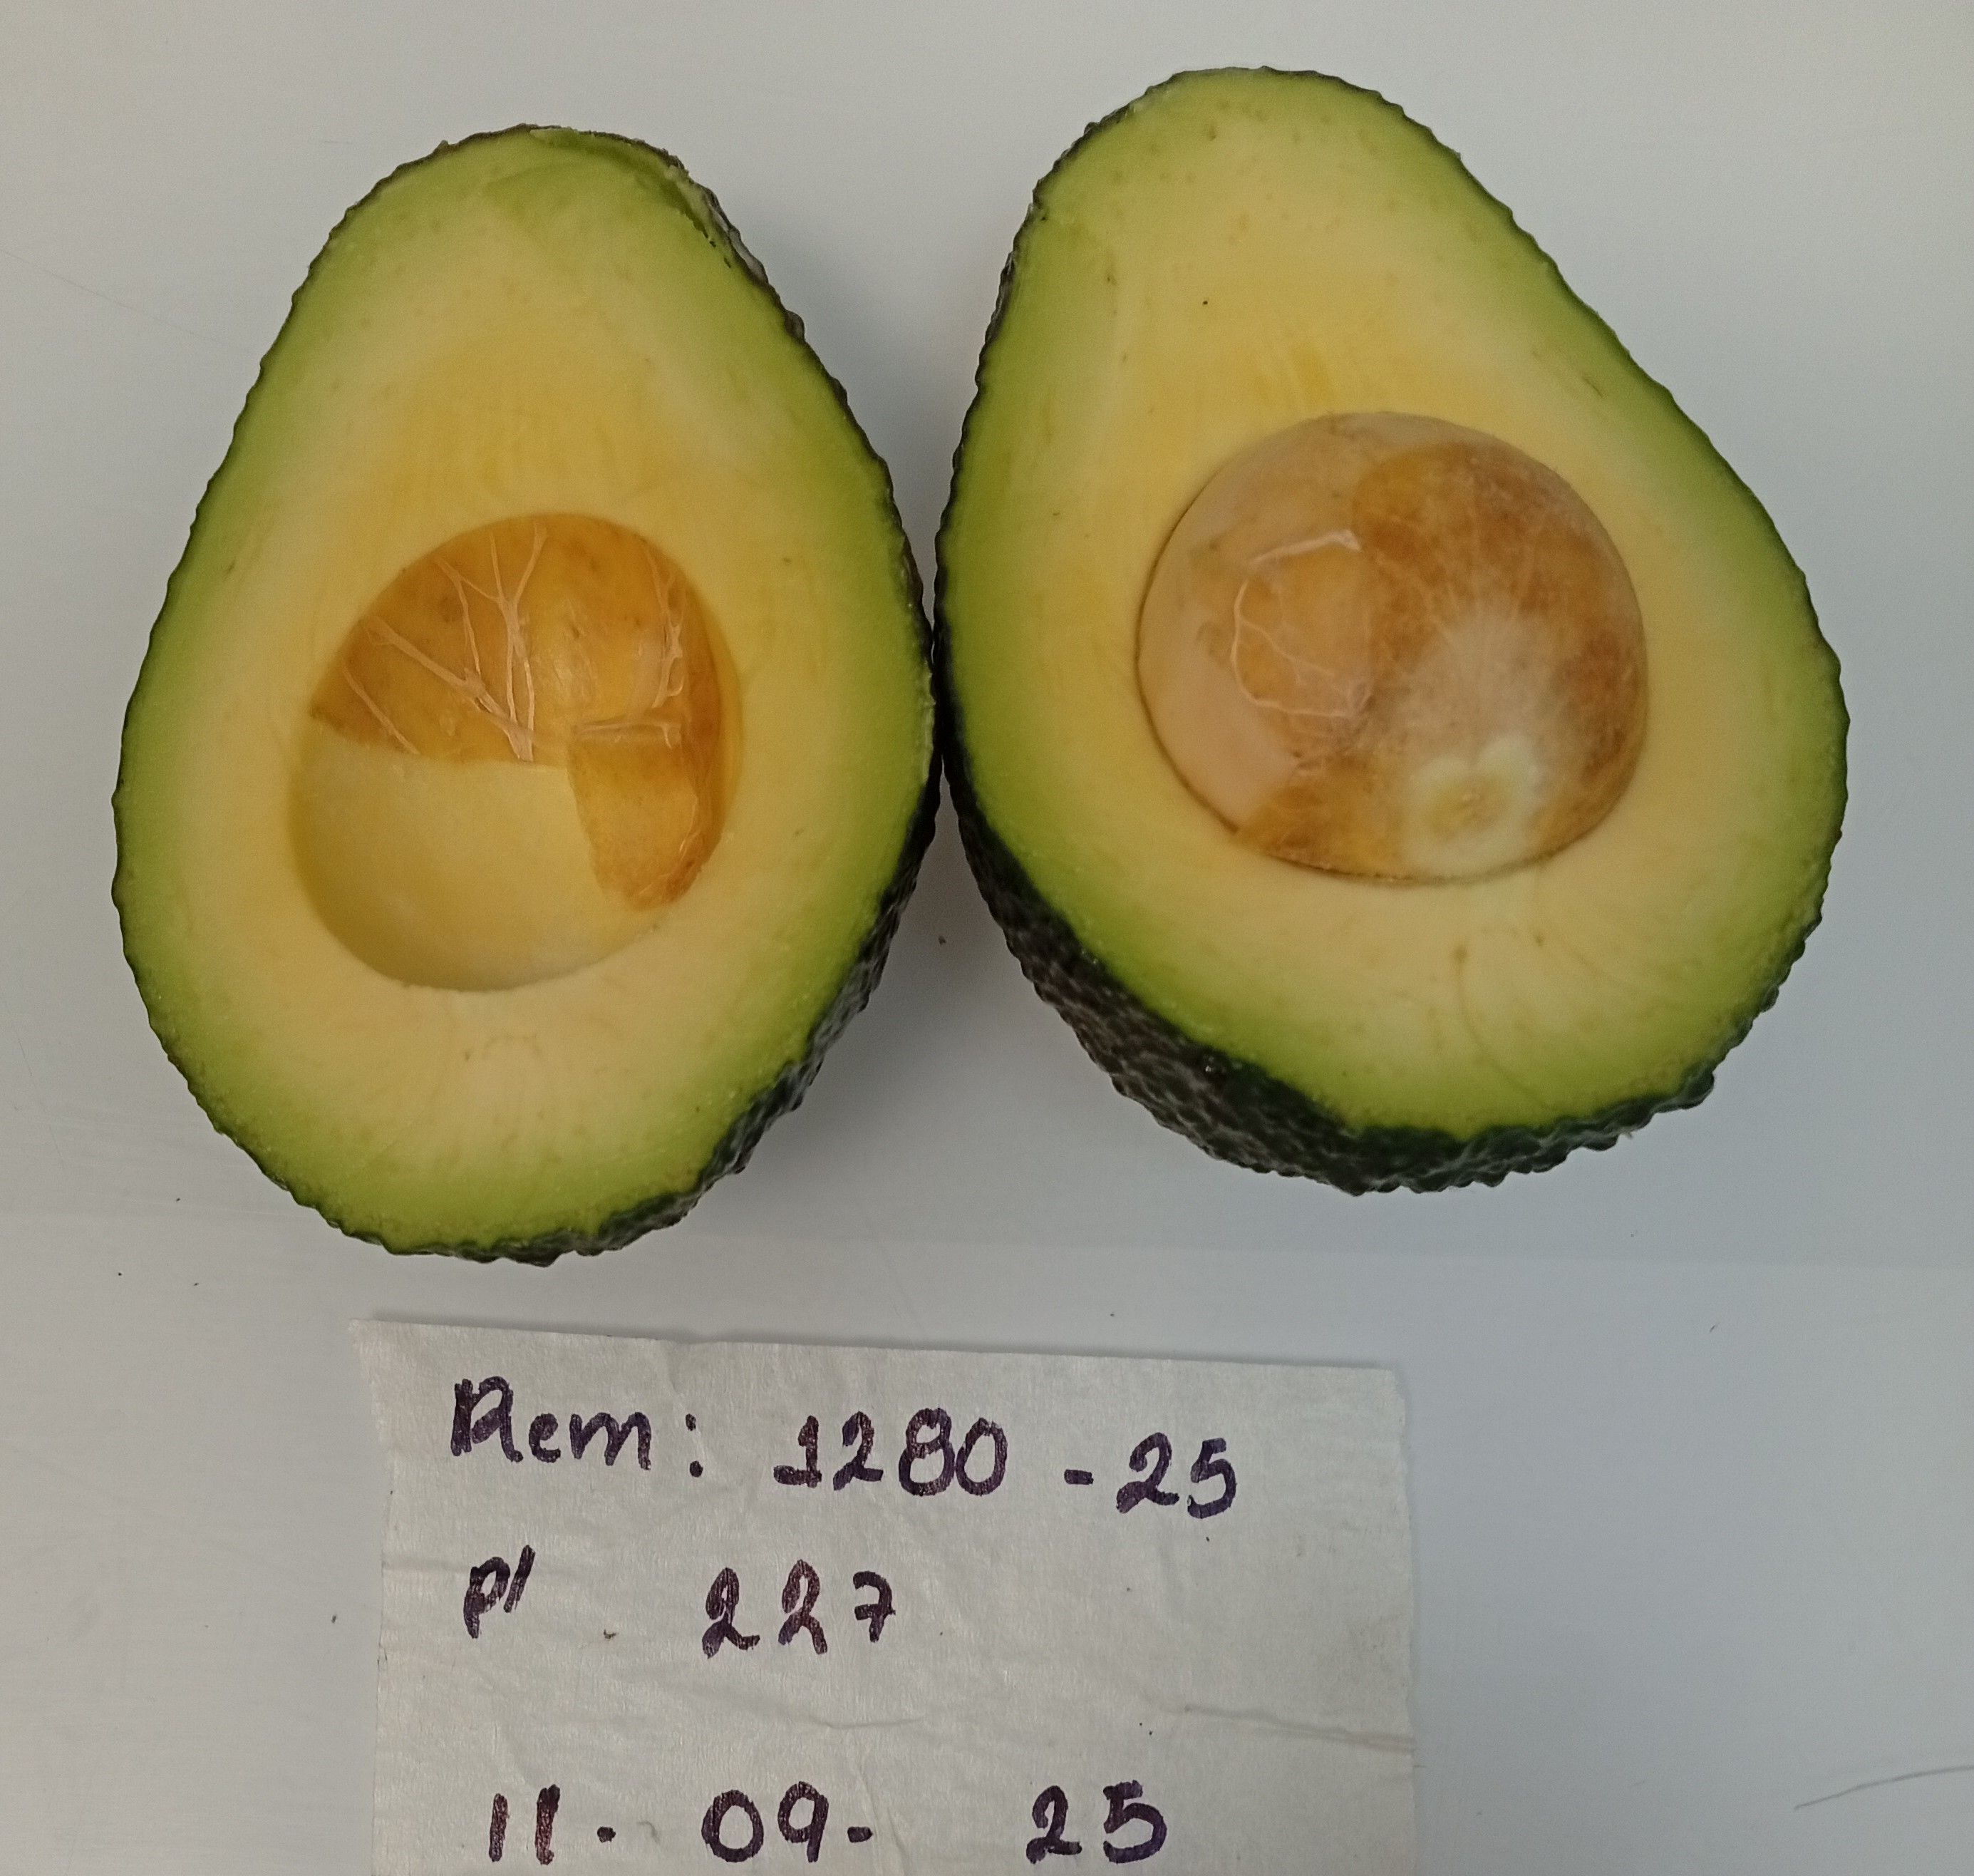 Rem: 1280 - 25
p' 227
11. 09. 25